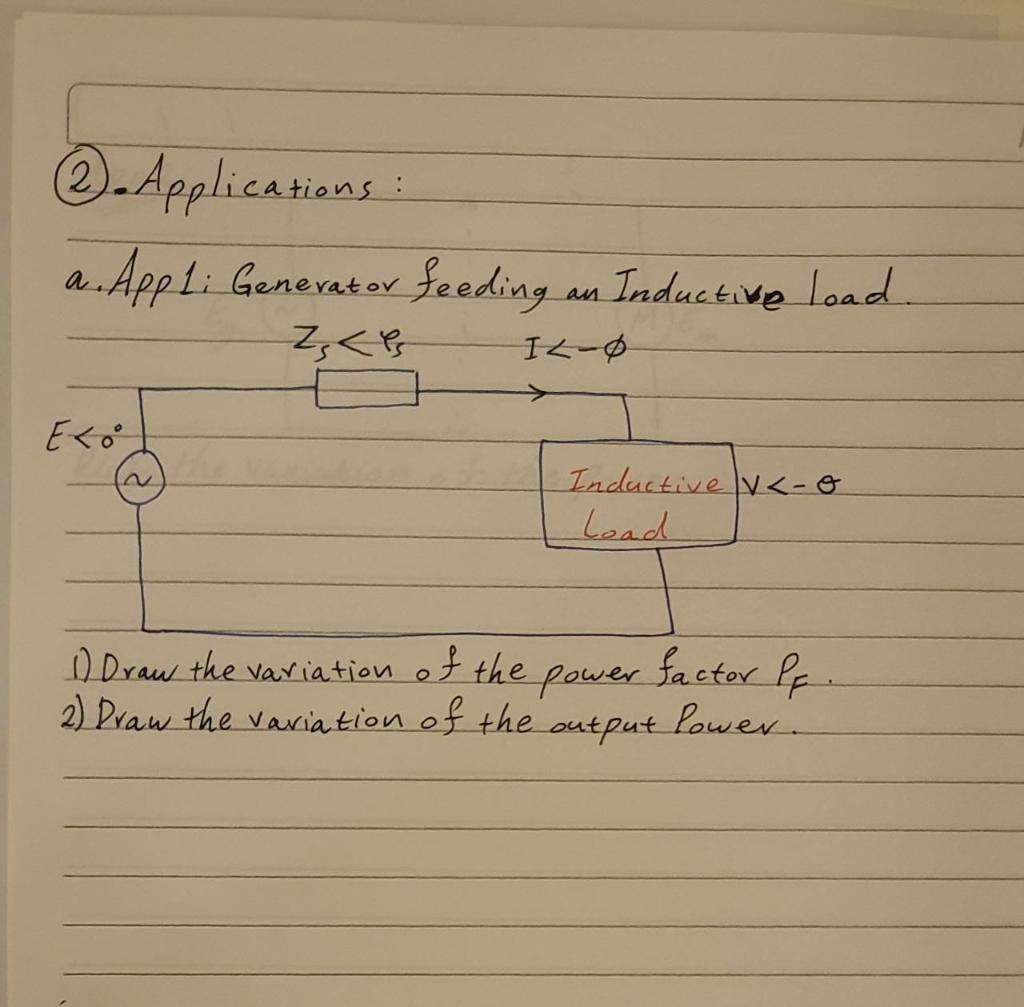 ②. Applications :
a. App1: Generator feeding an Inductive load.
Zs < φs
I < -ϕ
E < 0°
~
Inductive
Load
V < -θ
1) Draw the variation of the power factor PF.
2) Draw the variation of the output Power.